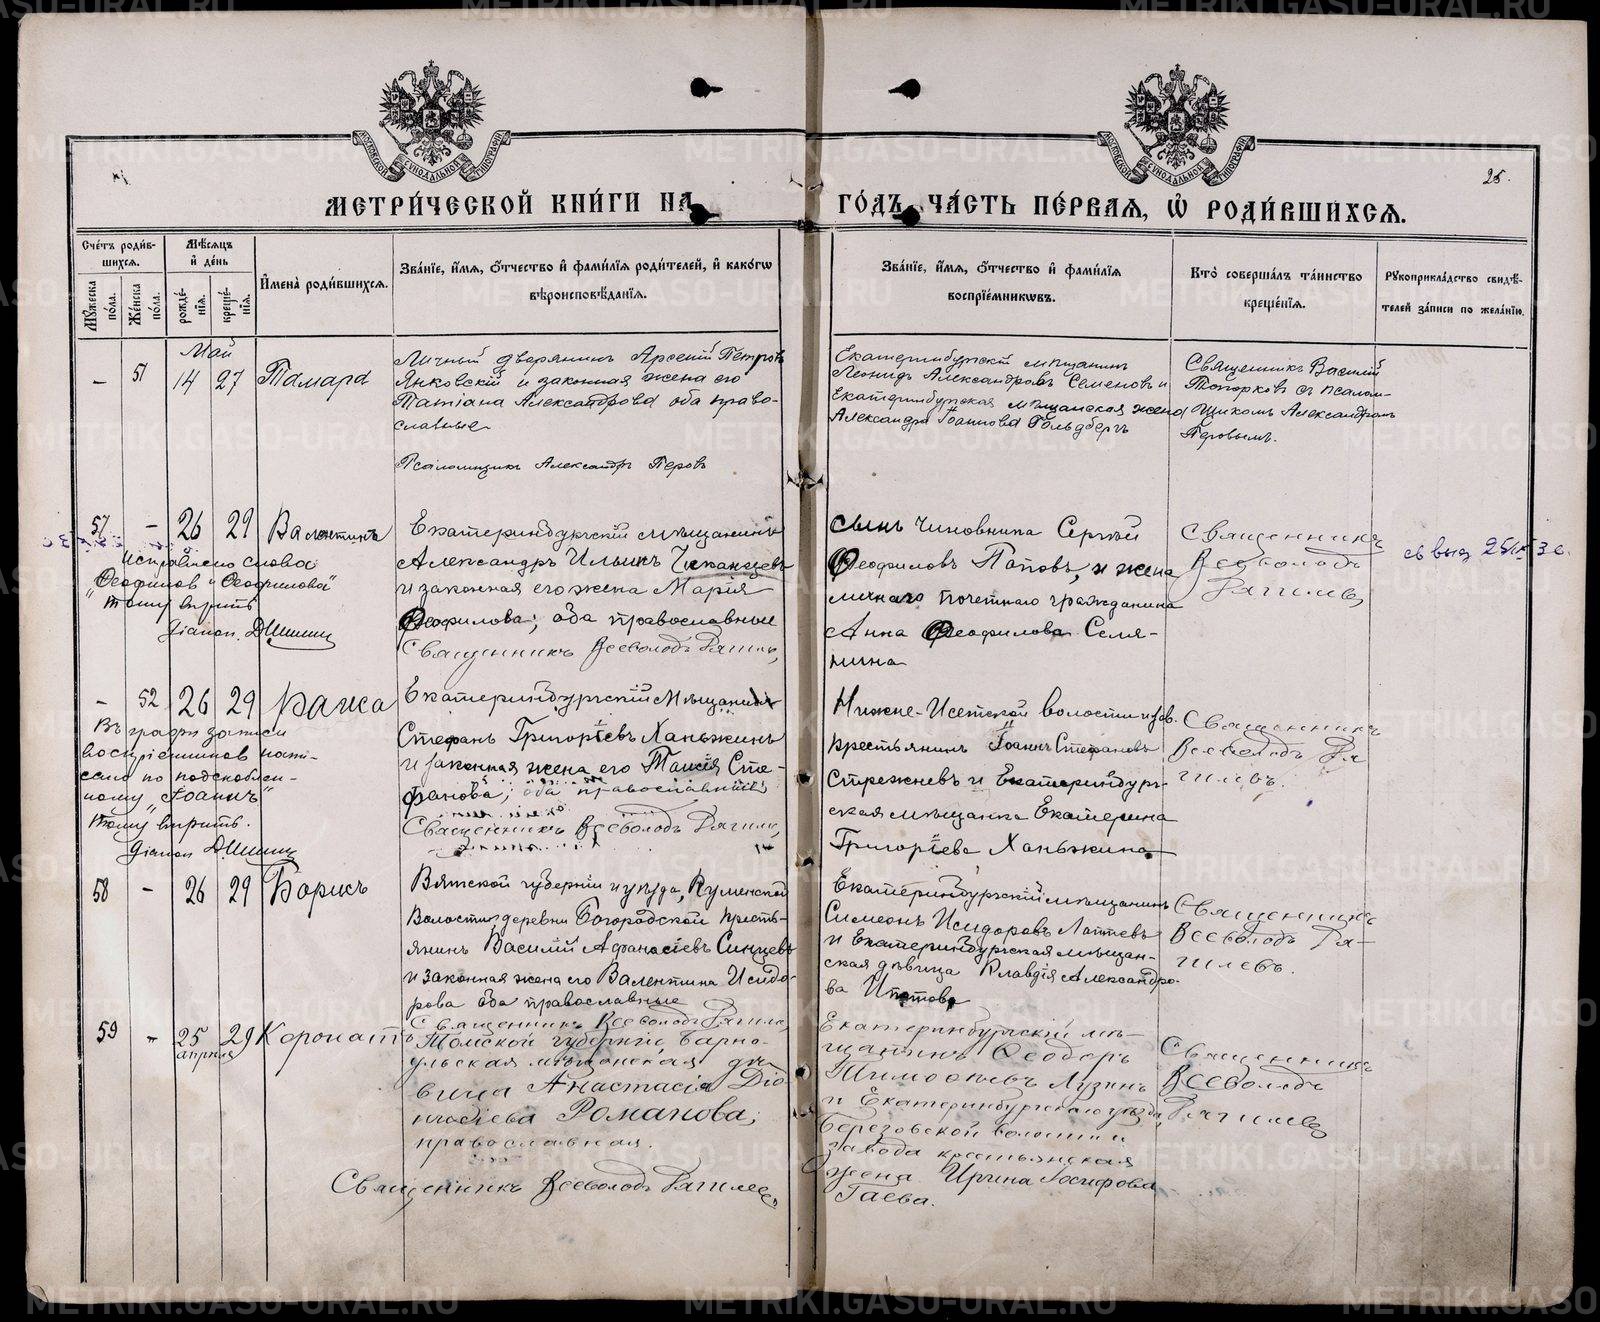 25.
МОСКОВСКОЙ СѴНОДАЛЬНОЙ ТИПОГРАФІИ
МОСКОВСКОЙ СѴНОДАЛЬНОЙ ТИПОГРАФІИ
МЕТРИ́ЧЕСКОЙ КНИ́ГИ НА ГО́ДЪ ЧА́СТЬ ПЕ́РВАЯ, Ѡ҆ РОДИ́ВШИХСЯ.
Сче́тъ роди́в-
шихся.
Мѣ́сяцъ
и҆ де́нь
Мꙋ́жеска по́ла.
Же́нска по́ла.
рожде́-
нїя.
креще́-
нїя.
И҆мена̀ роди́вшихся.
Зва́нїе, и҆́мя, ѻ҆́тчество и҆ фами́лїя роди́телей, и҆ како́гѡ
вѣроисповѣ́данїя.
Зва́нїе, и҆́мя, ѻ҆́тчество и҆ фами́лїя
воспрїе́мникѡвъ.
Кто̀ соверша́лъ та́инство
креще́нїя.
Рꙋкоприкла́дство свидѣ́-
телей за́писи по жела́нїю.
Май
– 51 14 27 Тамара
Личный дворянинъ Арсеній Петровъ
Янковскій и законная жена его
Татіана Александрова оба право-
славные
Псаломщикъ Александръ Перовъ
Екатеринбургскій мѣщанинъ
Леонидъ Александровъ Семеновъ и
Екатеринбургская мѣщанская жена
Александра Іоаннова Гольдбергъ
Священникъ Василій
Топорковъ съ псалом-
щикомъ Александромъ
Перовымъ.
57 – 26 29 Валентинъ
Исправлено слова
"Ѳеофилов и Ѳеофилова"
тому вѣрить
Діакон. Д.Шишин
Екатеринбургскій мѣщанинъ
Александръ Ильинъ Чеканцевъ
и законная его жена Марія
Ѳеофилова; оба православные
Священникъ Всеволодъ Рягилев,
сынъ чиновника Сергѣй
Ѳеофиловъ Поповъ, и жена
личнаго почетнаго гражданина
Анна Ѳеофилова Селя-
нина
Священникъ
Всеволодъ
Рягилев
– 52 26 29 Раиса
Въ графѣ записи
воспріемников напи-
сано по подскоблен-
ному "Іоаннъ"
тому вѣрить.
Діакон Д.Шишин
Екатеринбургскій мѣщанинъ
Стефанъ Григоріевъ Ханьжинъ
и законная жена его Таисія Сте-
фанова; оба православные
Священникъ Всеволодъ Рягилев,
Нижне-Исетской волости и зав.
крестьянинъ Іоаннъ Стефановъ
Стрежневъ и Екатеринбург-
ская мѣщанка Екатерина
Григоріева Ханьжина
Священникъ
Всеволодъ Ря
гилевъ.
58 – 26 29 Борисъ
Вятской губерніи и уѣзда, Куменской
волости деревни Богородской кресть-
янинъ Василій Афанасіевъ Синцевъ
и законная жена его Валентина Исидо-
рова оба православные
Священникъ Всеволодъ Рягилев,
Екатеринбургскій мѣщанинъ
Симеонъ Исидоровъ Лаптевъ
и Екатеринбургская мѣщан-
ская дѣвица Клавдія Александро-
ва Ипатова
Священникъ
Всеволодъ Ря-
гилевъ.
59 – 25 29 Коронатъ
апрѣля
Томской губерніи, Барна-
ульская мѣщанская дѣ-
вица Анастасія Діо-
нисіева Романова;
православная.
Священникъ Всеволодъ Рягилев,
Екатеринбургскій мѣ-
щанинъ Ѳеодоръ
Тимоѳеевъ Лузинъ
и Екатеринбургскаго уѣзда,
Березовской волости и
завода крестьянская
жена Ирина Іосифова
Гаева.
Священникъ
Всеволодъ
Рягилев